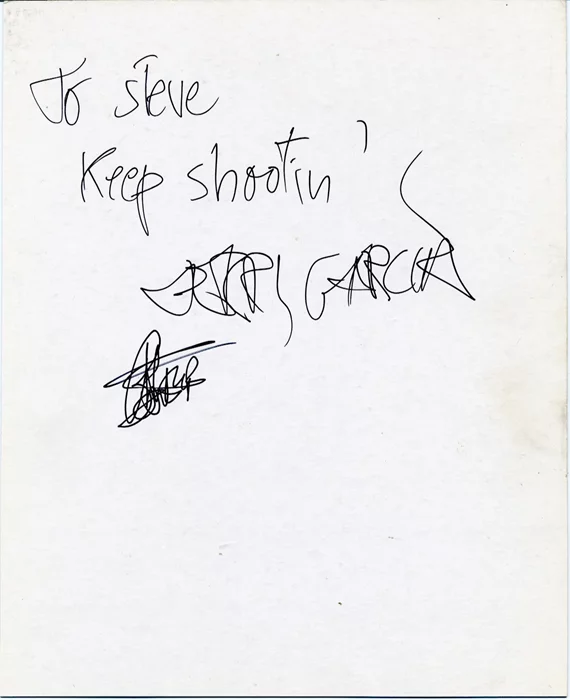 To steve
Keep shootin'
JERRY GARCIA